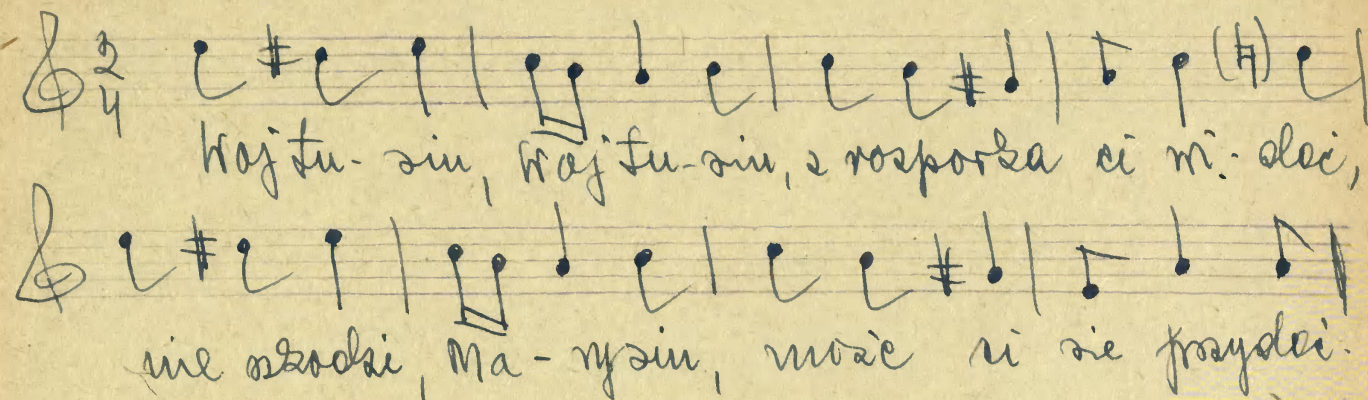 2 4
Wojtu-siu, Wojtu-siu, z rosporka ci wi-dać,
nie szkodzi, Ma-rysiu, może ci sie przydać.